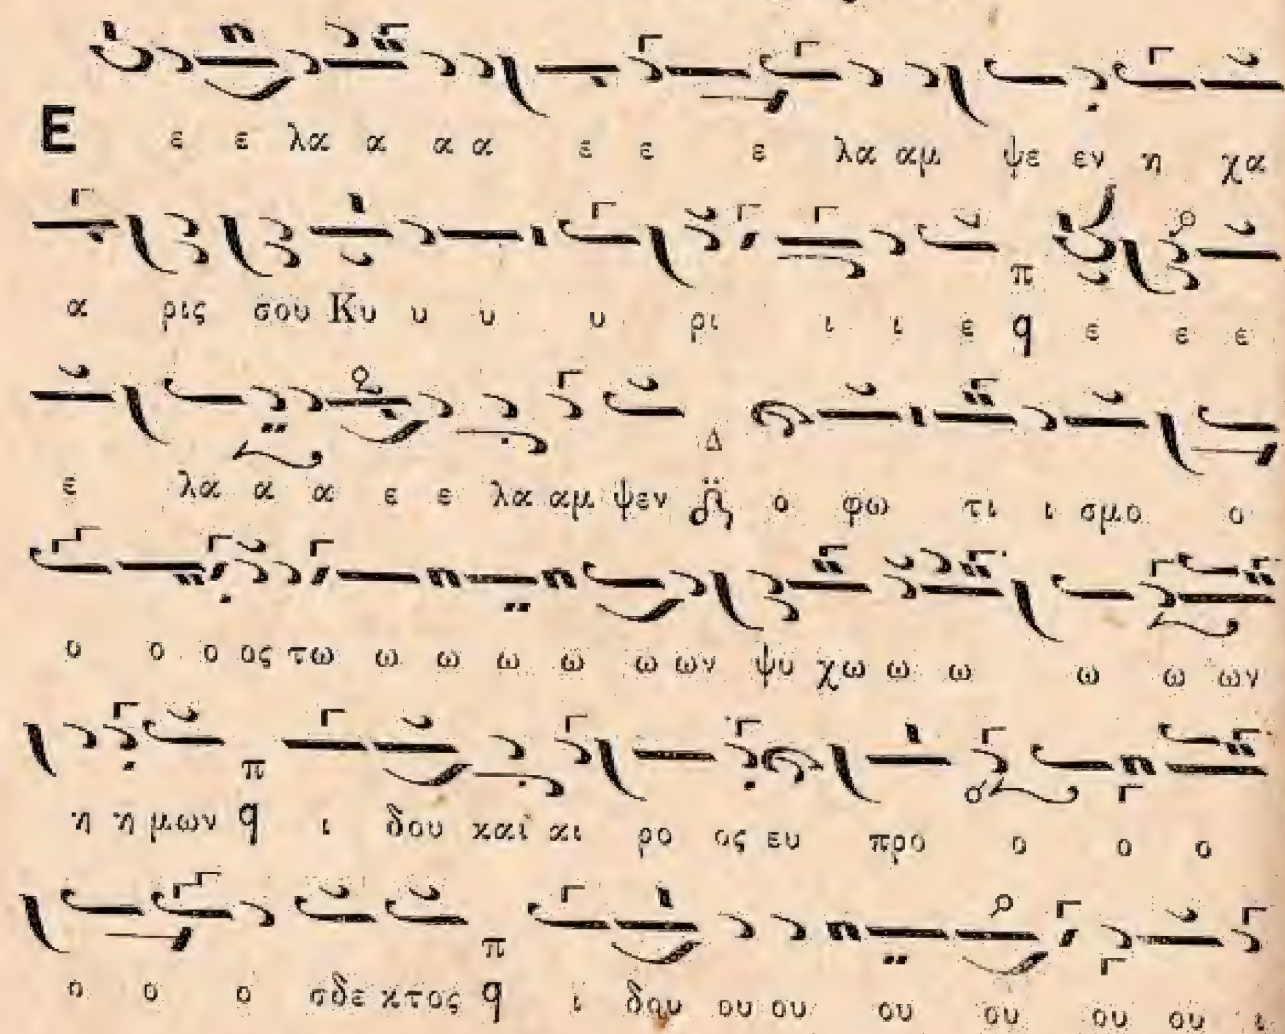 Ε ε ε λα α α α ε ε ε λα αμ ψε εν η χα
α ρις σου Κυ υ υ υ ρι ι ι ε π q ε ε ε
ε λα α α ε ε λα αμ ψεν Δ ο φω τι ι σμο ο
ο ο ο ος τω ω ω ω ω ω ων ψυ χω ω ω ω ω ων
η η μων π q ι δου και αι ρο ος ευ προ ο ο ο
ο ο ο σδε κτος π q ι δου ου ου ου ου ου ου ι